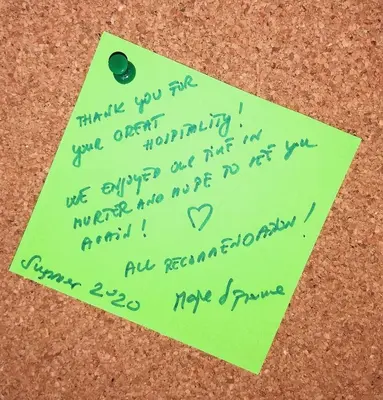 THANK YOU FOR
YOUR GREAT
HOSPITALITY!
WE ENJOYED OUR TIME IN
MURTER AND HOPE TO SEE YOU
AGAIN! ♡
ALL RECOMMENDATION!
Summer 2020